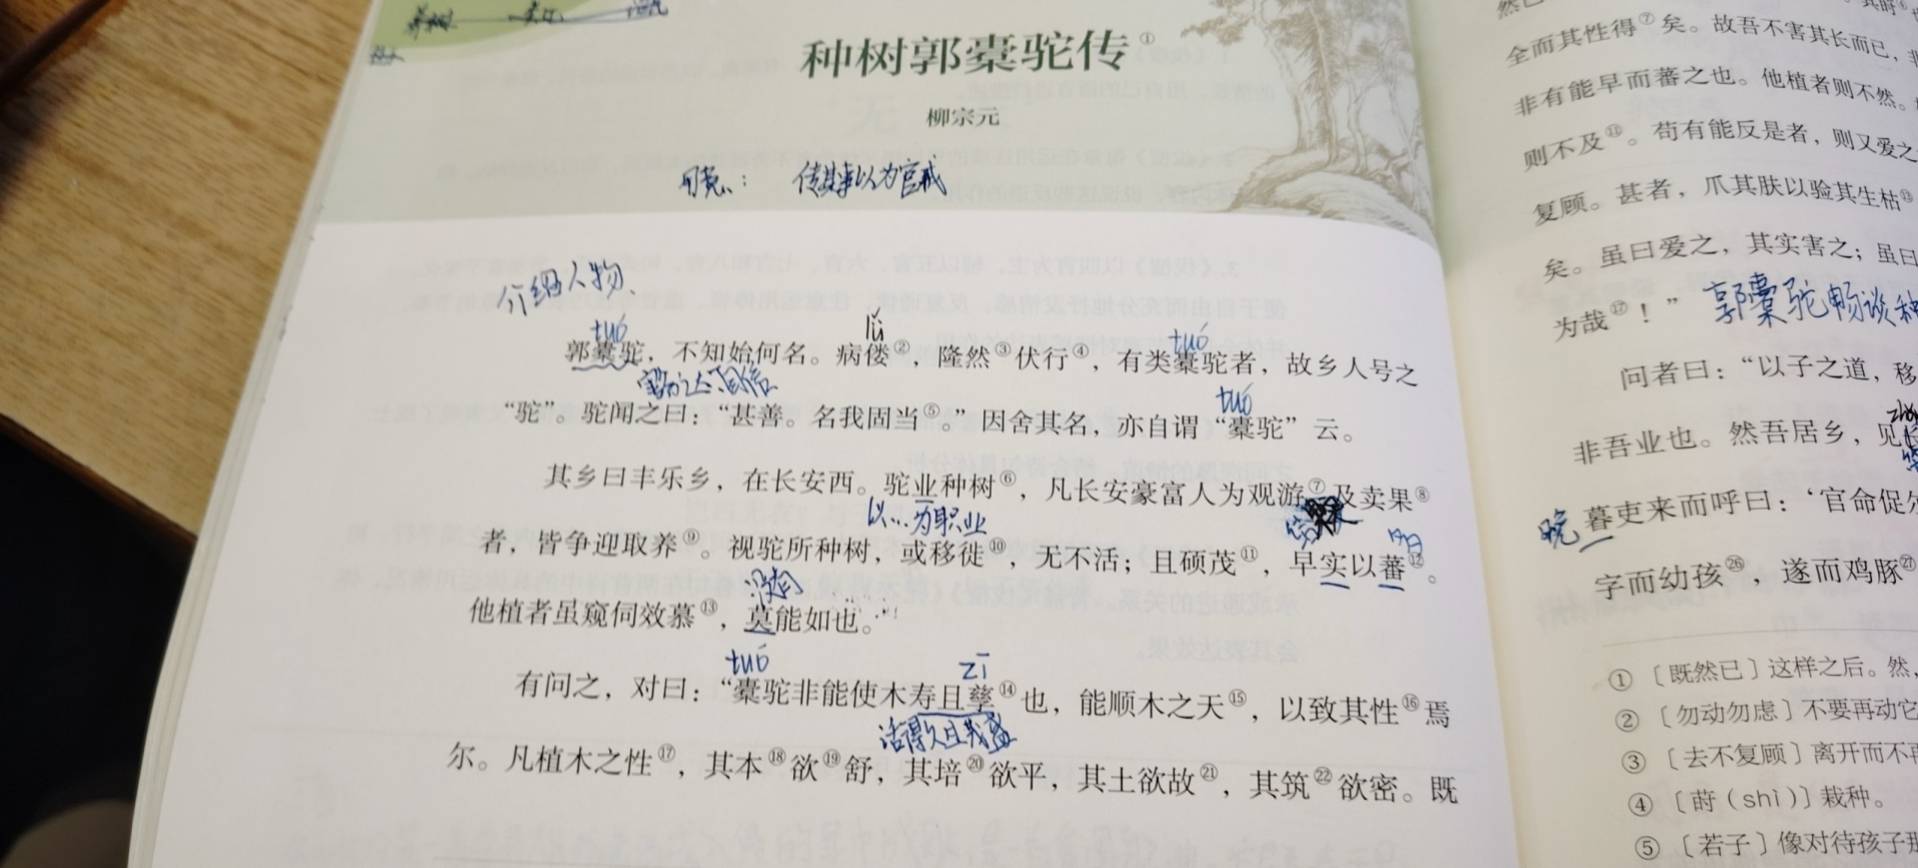 种树郭橐驼传①
柳宗元
传其事以为官戒
介绍人物
tuó lǚ tuó
郭橐驼，不知始何名。病偻②，隆然③伏行④，有类橐驼者，故乡人号之
tuó
“驼”。驼闻之曰：“甚善。名我固当⑤。”因舍其名，亦自谓“橐驼”云。
其乡曰丰乐乡，在长安西。驼业种树⑥，凡长安豪富人为观游⑦及卖果⑧
以…为职业
多
者，皆争迎取养⑨。视驼所种树，或移徙⑩，无不活；且硕茂⑪，早实以蕃⑫。
没有
他植者虽窥伺效慕⑬，莫能如也。
tuó zī
有问之，对曰：“橐驼非能使木寿且孳⑭也，能顺木之天⑮，以致其性⑯焉
活得久且茂盛
尔。凡植木之性⑰，其本⑱欲⑲舒，其培⑳欲平，其土欲故㉑，其筑㉒欲密。既
全而其性得⑦矣。故吾不害其长而已，
非有能早而蕃之也。他植者则不然。
则不及⑪。苟有能反是者，则又爱之
复顾。甚者，爪其肤以验其生枯⑬
矣。虽曰爱之，其实害之；虽曰
为哉⑰！”
郭橐驼畅谈种
问者曰：“以子之道，移
非吾业也。然吾居乡，见
晚
暮吏来而呼曰：‘官命促尔
字而幼孩㉖，遂而鸡豚㉗
①〔既然已〕这样之后。然，
②〔勿动勿虑〕不要再动它
③〔去不复顾〕离开而不再
④〔莳（shì）〕栽种。
⑤〔若子〕像对待孩子那